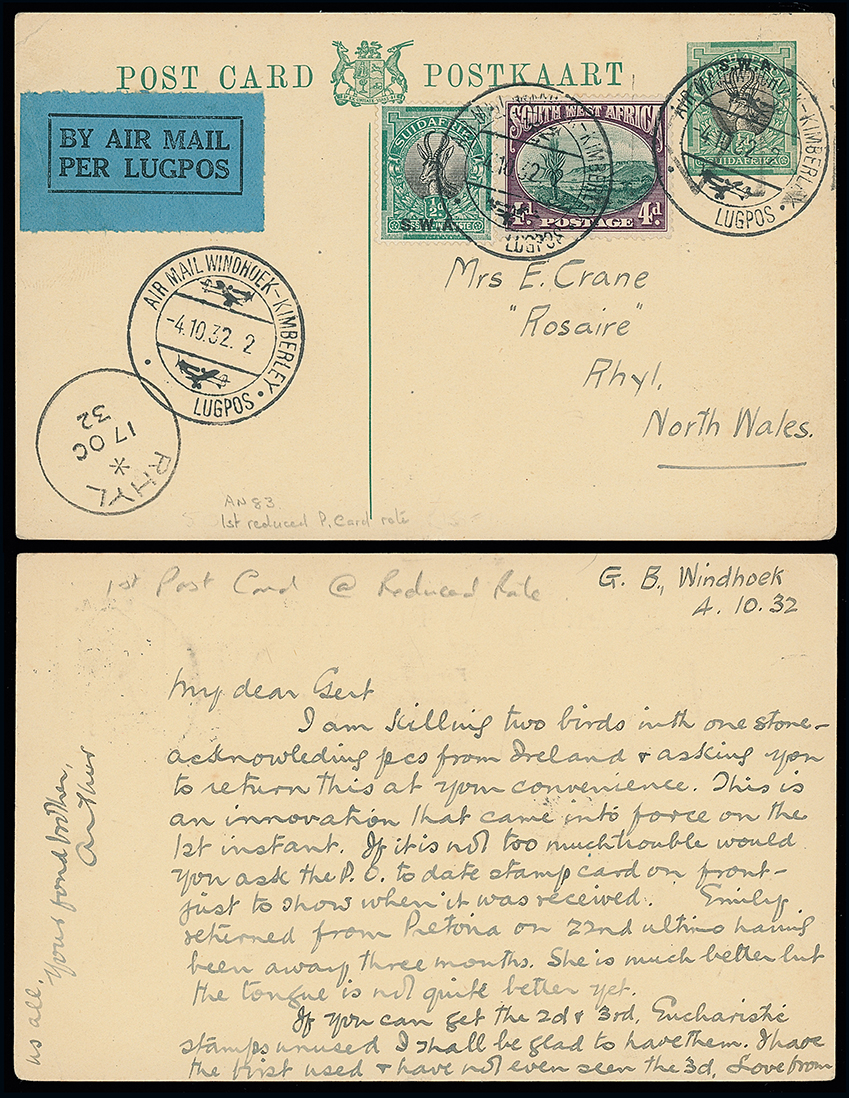 POST CARD POSTKAART
BY AIR MAIL
PER LUGPOS
SUIDAFRIKA
½d
S.W.A.
SOUTH WEST AFRICA
4d POSTAGE 4d
S.W.A.
SUIDAFRIKA
AIR MAIL WINDHOEK-KIMBERLEY
-4.10.32. 2
LUGPOS
AIR MAIL WINDHOEK-KIMBERLEY
-4.10.32. 2
LUGPOS
AIR MAIL WINDHOEK-KIMBERLEY
-4.10.32. 2
LUGPOS
Mrs E. Crane
"Rosaire"
Rhyl,
North Wales.
RHYL
*
17 OC
32
AN 83
1st reduced P. Card rate
1st Post Card @ Reduced Rate
G. B., Windhoek
4. 10. 32
My dear Gert
I am killing two birds with one stone -
acknowleding pcs from Ireland & asking you
to return this at your convenience. This is
an innovation that came into force on the
1st instant. If it is not too much trouble would
you ask the P.O. to date stamp card on front -
just to show when it was received. Emily
returned from Pretoria on 22nd ultimo having
been away three months. She is much better but
the tongue is not quite better yet.
If you can get the 2d & 3rd, Eucharistic
stamps unused I shall be glad to have them. I have
the first used & have not even seen the 3d. Love from
us all.
Your fond brother,
Arthur